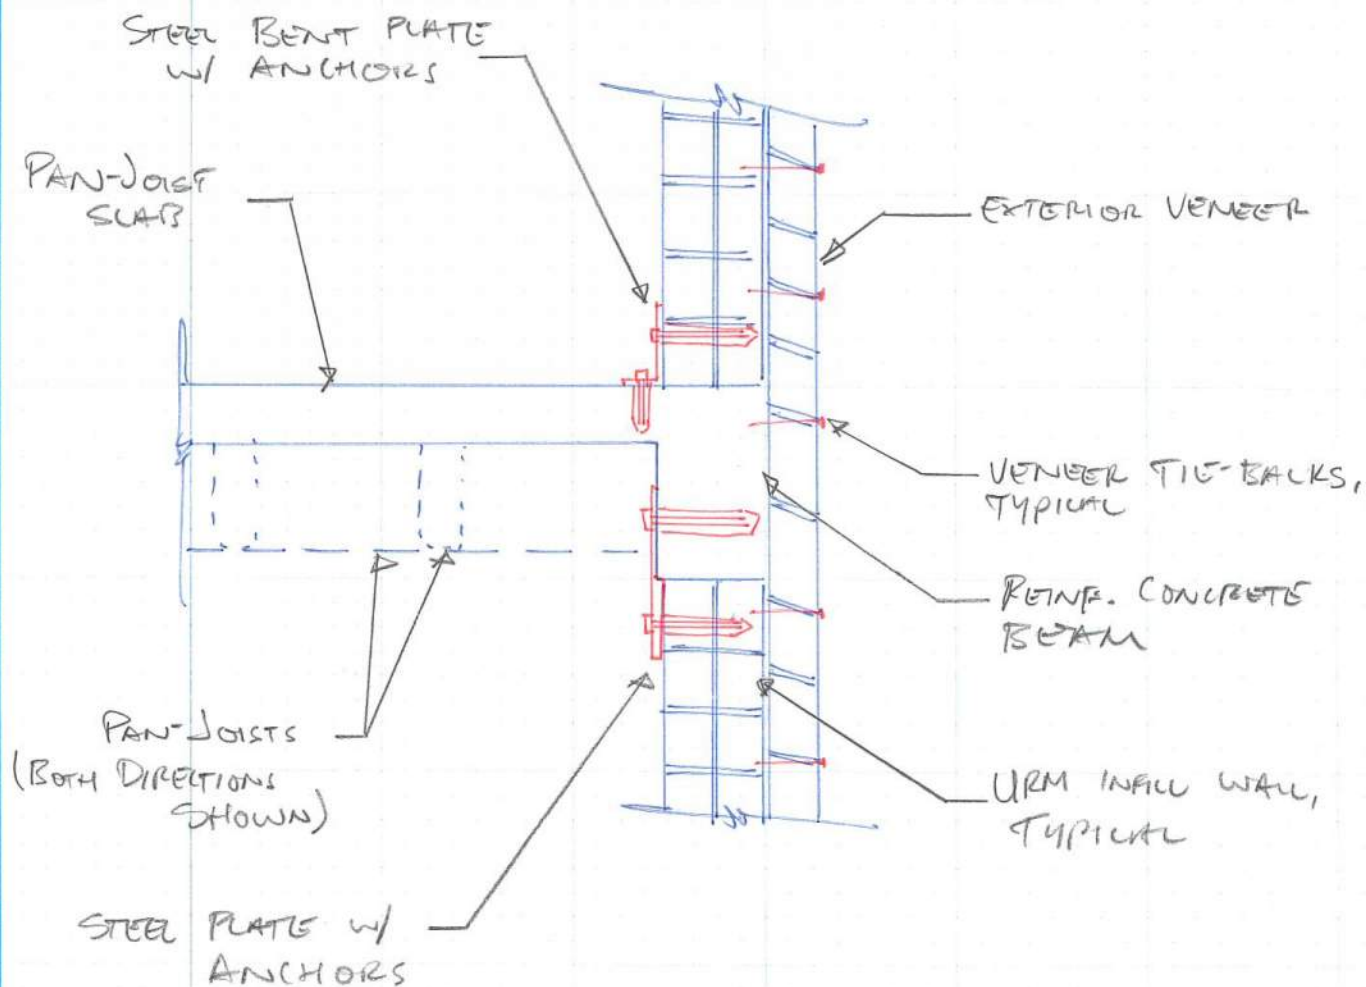 STEEL BENT PLATE
W/ ANCHORS
PAN-JOIST
SLAB
EXTERIOR VENEER
VENEER TIE-BACKS,
TYPICAL
REINF. CONCRETE
BEAM
PAN-JOISTS
(BOTH DIRECTIONS
SHOWN)
URM INFILL WALL,
TYPICAL
STEEL PLATE W/
ANCHORS